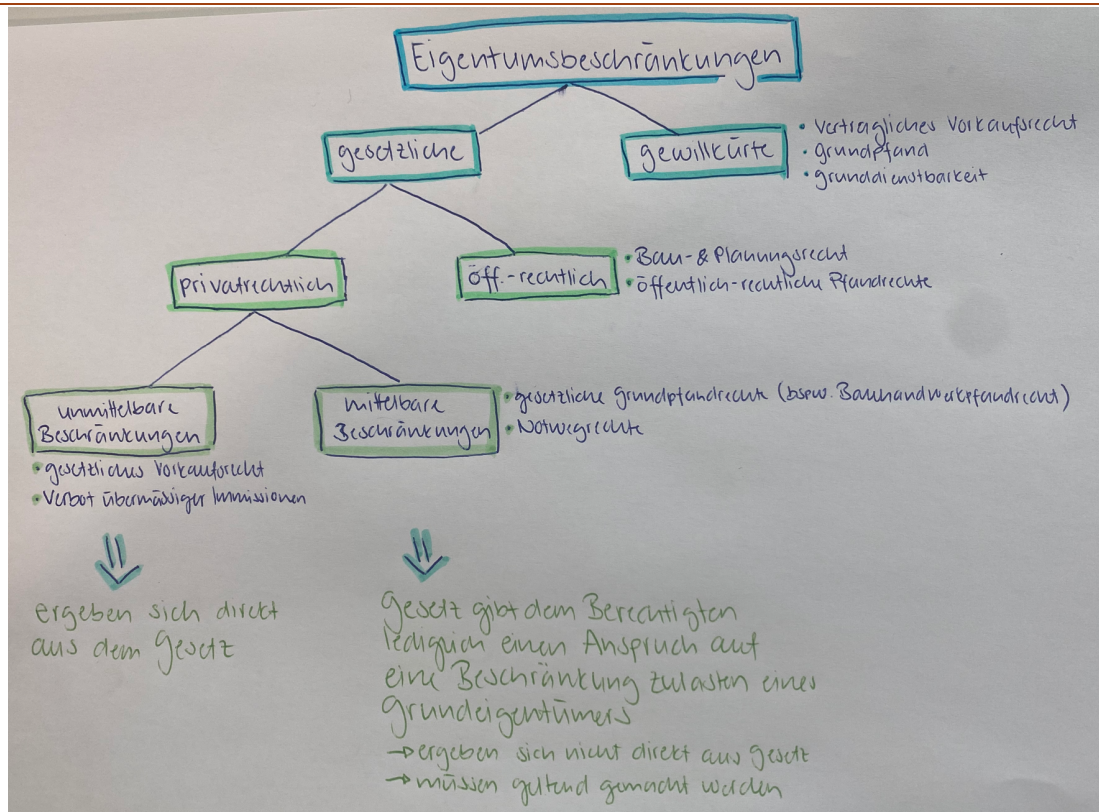 Eigentumsbeschränkungen
gesetzliche
gewillkürte
• Vertragliches Vorkaufsrecht
• Grundpfand
• Grunddienstbarkeit
privatrechtlich
öff.-rechtlich
• Bau- & Planungsrecht
• öffentlich-rechtliche Pfandrechte
unmittelbare
Beschränkungen
• gesetzliches Vorkaufsrecht
• Verbot übermässiger Immissionen
mittelbare
Beschränkungen
• gesetzliche Grundpfandrechte (bspw. Bauhandwerkpfandrecht)
• Notwegrechte
ergeben sich direkt
aus dem Gesetz
Gesetz gibt dem Berechtigten
lediglich einen Anspruch auf
eine Beschränkung zulasten eines
Grundeigentümers
→ ergeben sich nicht direkt aus Gesetz
→ müssen geltend gemacht werden